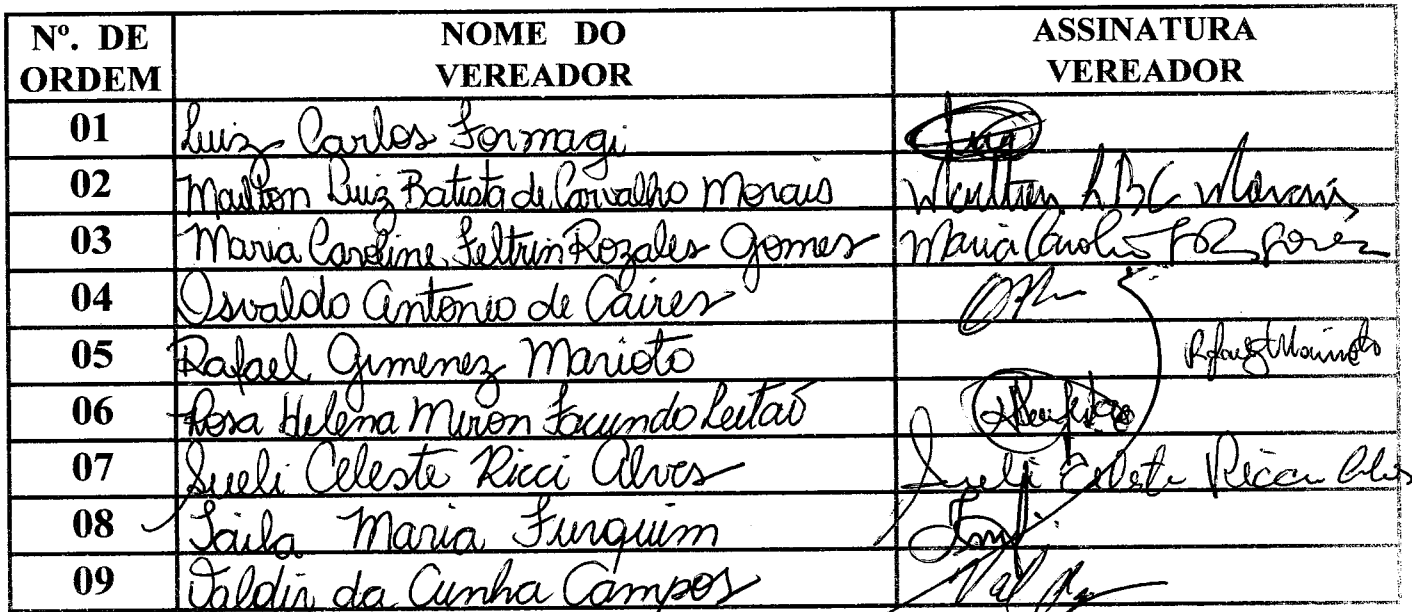 Nº. DE ORDEM NOME DO VEREADOR ASSINATURA VEREADOR
01 Luiz Carlos Formagi
02 Mailton Luiz Batista de Carvalho Morais Mailton L B C Morais
03 Maria Caroline Feltrin Rozales Gomes Maria Caroli
04 Osvaldo Antonio de Caires
05 Rafael Gimenez Marioto
06 Rosa Helena Miron Facundo Leitão
07 Sueli Celeste Ricci Alves Sueli Celeste Ricci Alves
08 Maria Furquim
09 Valdir da Cunha Campos